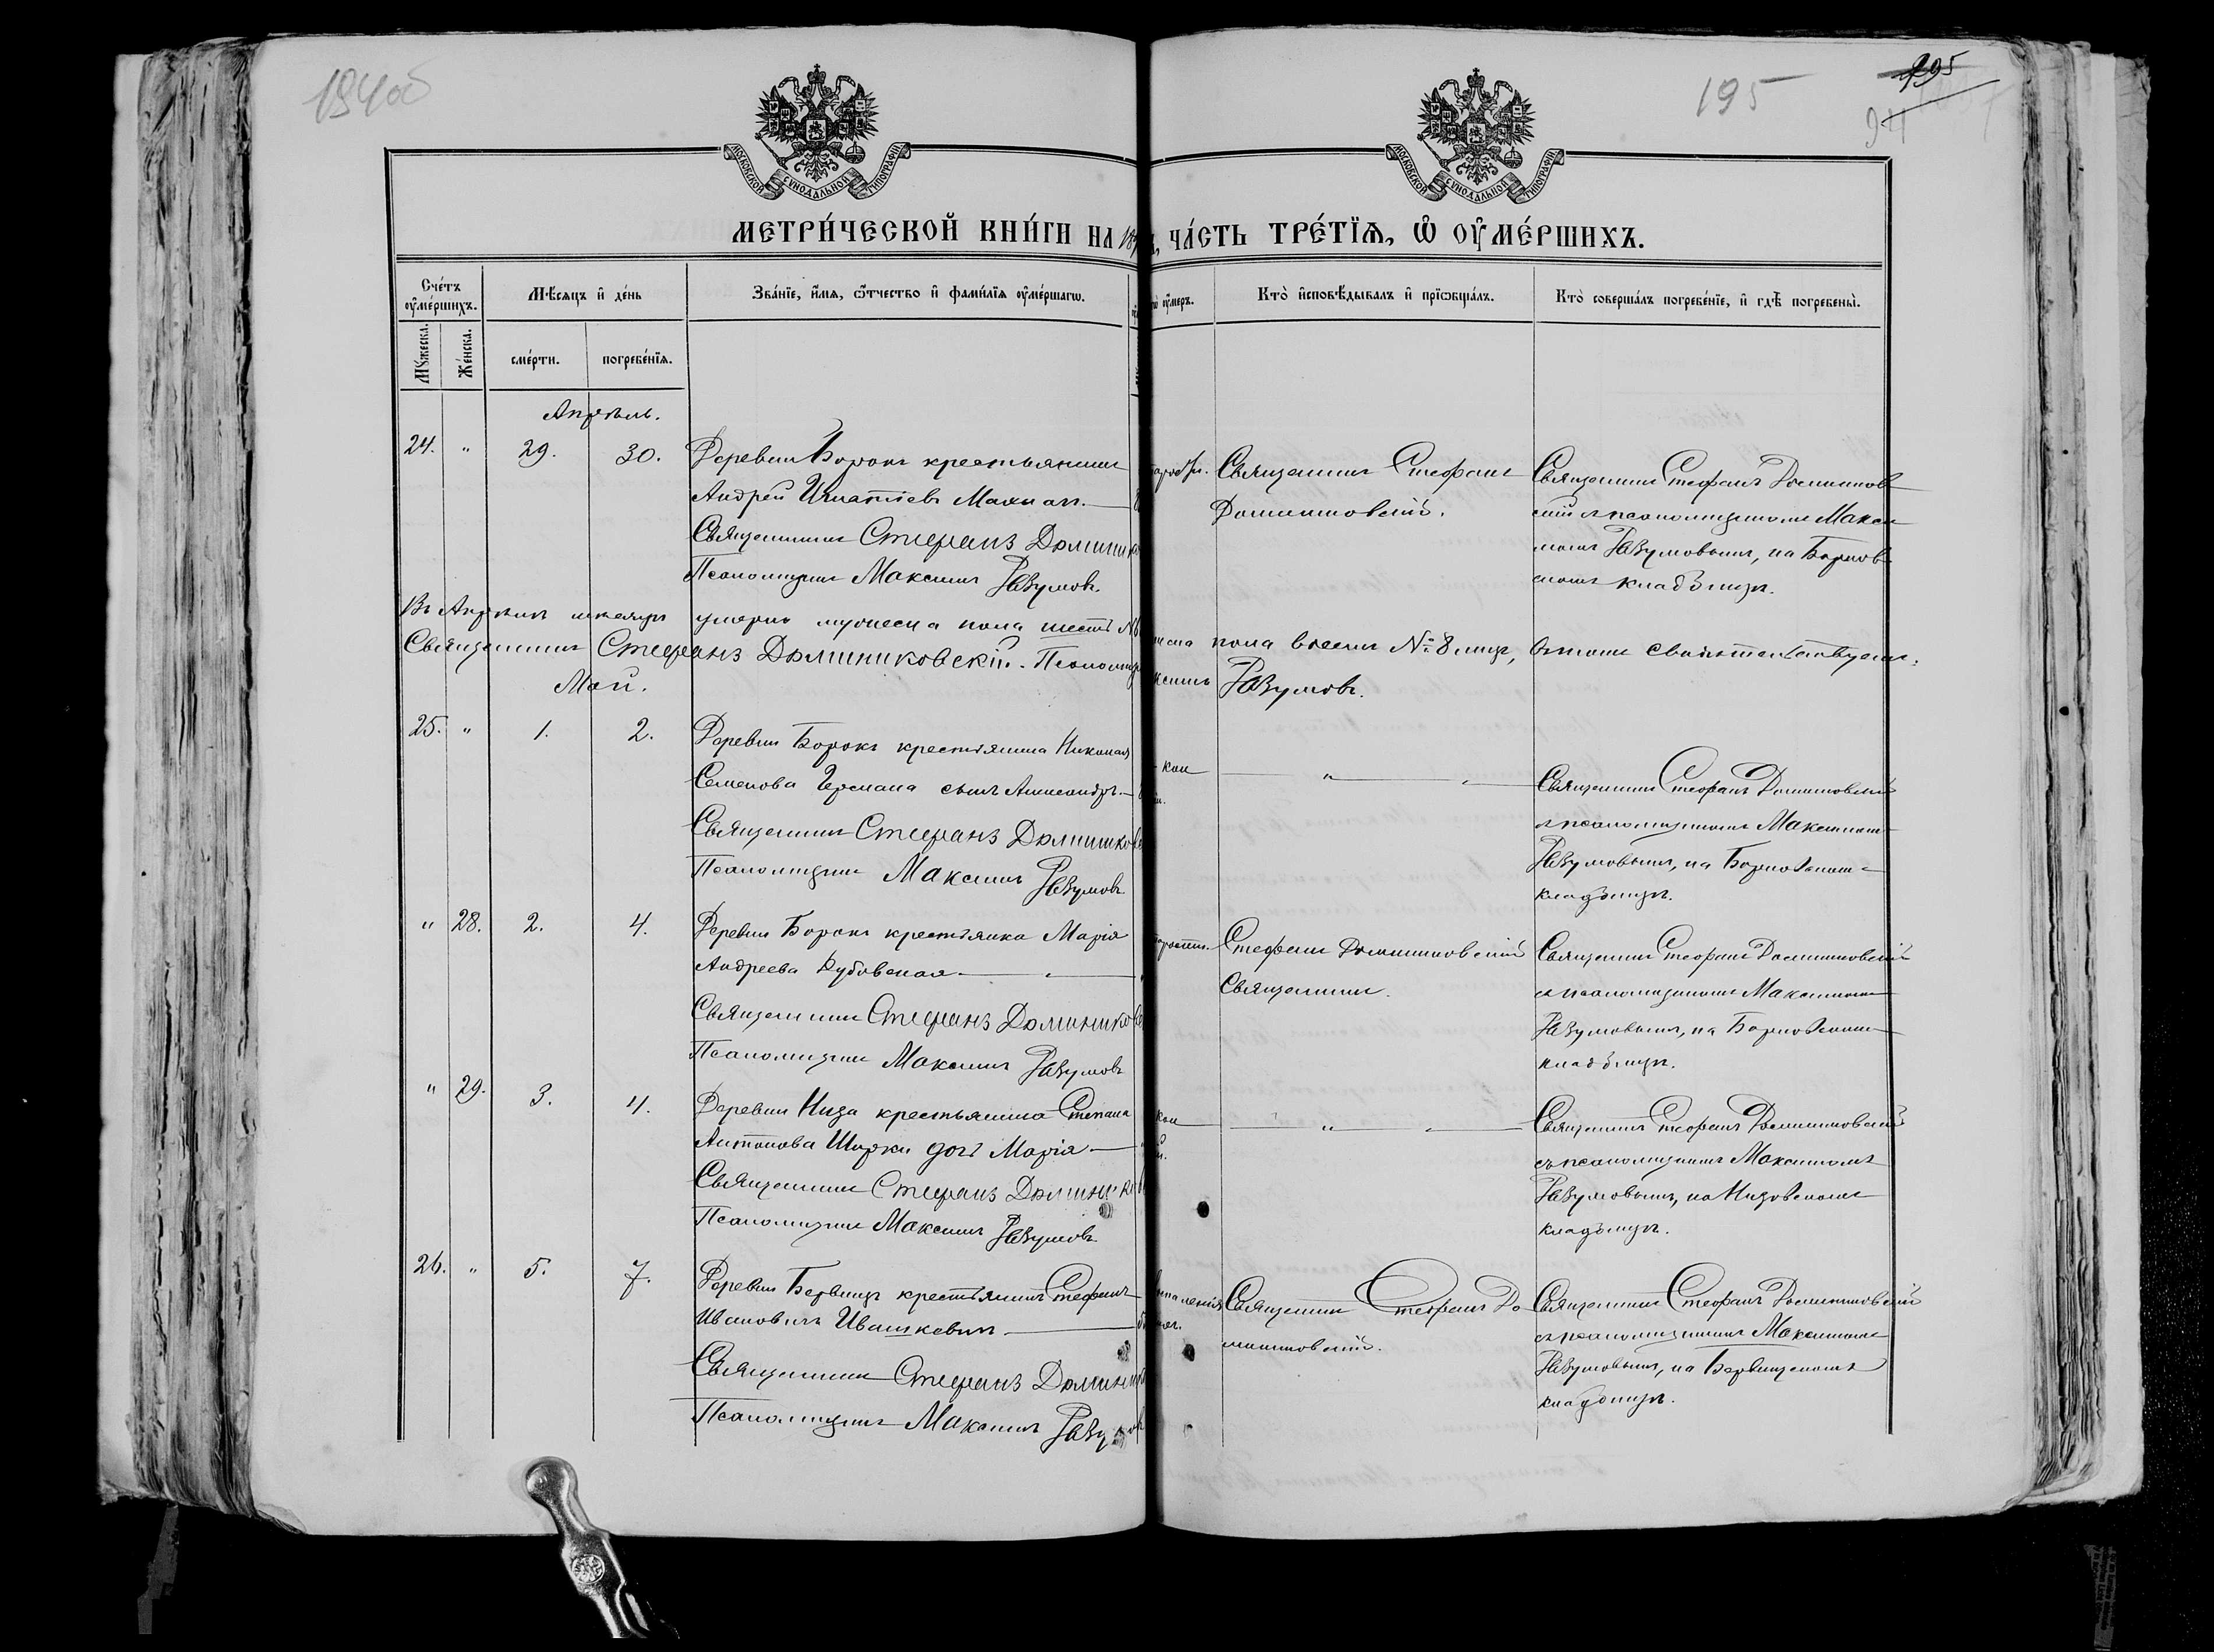 194об
195
195
94
МОСКОВСКОЙ СѴНОДАЛЬНОЙ ТИПОГРАФІИ
МОСКОВСКОЙ СѴНОДАЛЬНОЙ ТИПОГРАФІИ
МЕТРИ́ЧЕСКОЙ КНИ́ГИ НА 18
ЧА́СТЬ ТРЕ́ТЇѦ, Ѡ҆ ОУ҆МЕ́РШИХЪ.
Сче́тъ оу҆ме́ршихъ.
Мѣ́сяцъ и҆ де́нь
Зва́нїе, и҆́мѧ, ѻ҆́тчество и҆ фами́лїѧ оу҆ме́ршагѡ.
оу҆меръ.
Кто̀ и҆сповѣ́дывалъ и҆ прїѡбща́лъ.
Кто̀ соверша́лъ погребе́нїе, и҆ гдѣ̀ погребены̀.
Мꙋ́жеска.
Же́нска.
сме́рти.
погребе́нїѧ.
Апрѣль.
24. " 29. 30.
Деревни Борокъ крестьянинъ
Андрей Игнатіевъ Махнач.
Священникъ Стефанъ Домиников
Псаломщикъ Максимъ Разумовъ.
Священникъ Стефанъ
Доминиковскій.
Священникъ Стефанъ Домиников
скій съ псаломщикомъ Макси
момъ Разумовымъ, на Борков
скомъ кладбищѣ.
Въ Апрѣлѣ мѣсяцѣ умерло мужеска пола шесть №
пола восемь № 8 лицъ, въ томъ свидѣтельствуемъ:
Священникъ Стефанъ Доминиковскій. Псаломщ
ксимъ Разумовъ.
Май.
25. " 1. 2.
Деревни Борокъ крестьянина Николая
Семенова Германа сынъ Александръ.
Священникъ Стефанъ Домиников
Псаломщикъ Максимъ Разумовъ
"
Священникъ Стефанъ Доминиковскій
съ псаломщикомъ Максимомъ
Разумовымъ, на Борковскомъ
кладбищѣ.
" 28. 2. 4.
Деревни Борокъ крестьянка Марія
Андреева Дубовская
Священникъ Стефанъ Домиников
Псаломщикъ Максимъ Разумовъ
Стефанъ Доминиковскій
Священникъ.
Священникъ Стефанъ Доминиковскій
съ псаломщикомъ Максимомъ
Разумовымъ, на Борковскомъ
кладбищѣ.
" 29. 3. 4.
Деревни Низа крестьянина Степана
Антонова Ширки дочь Марія
Священникъ Стефанъ Домиников
Псаломщикъ Максимъ Разумовъ.
"
Священникъ Стефанъ Доминиковскій
съ псаломщикомъ Максимомъ
Разумовымъ, на Низовскомъ
кладбищѣ.
26. " 5. 7.
Деревни Бервищъ крестьянинъ Стефанъ
Ивановичъ Ивашкевичъ
Священникъ Стефанъ Домиников
Псаломщикъ Максимъ Разумовъ
Священникъ Стефанъ До
миниковскій.
Священникъ Стефанъ Доминиковскій
съ псаломщикомъ Максимомъ
Разумовымъ, на Бервищскомъ
кладбищѣ.